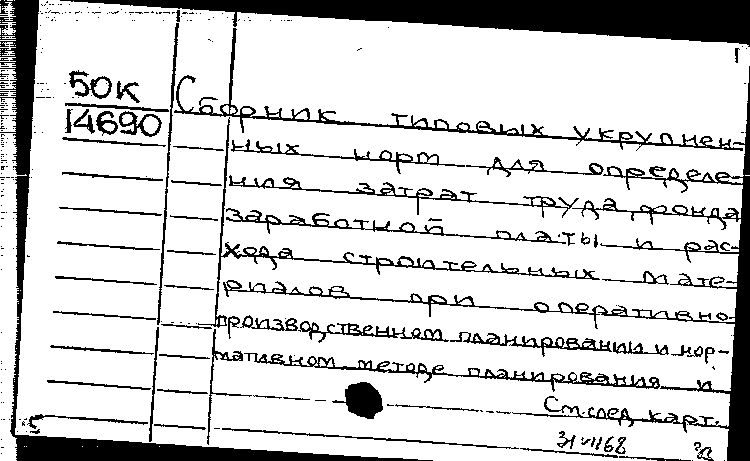 50К
14690
Сборник типовых укрупнен-
ных норм для определе-
ния затрат труда, фонда
заработной платы и рас-
хода строительных мате-
риалов при оперативно-
производственном планировании и нор-
мативном методе планирования и
См.след. карт.